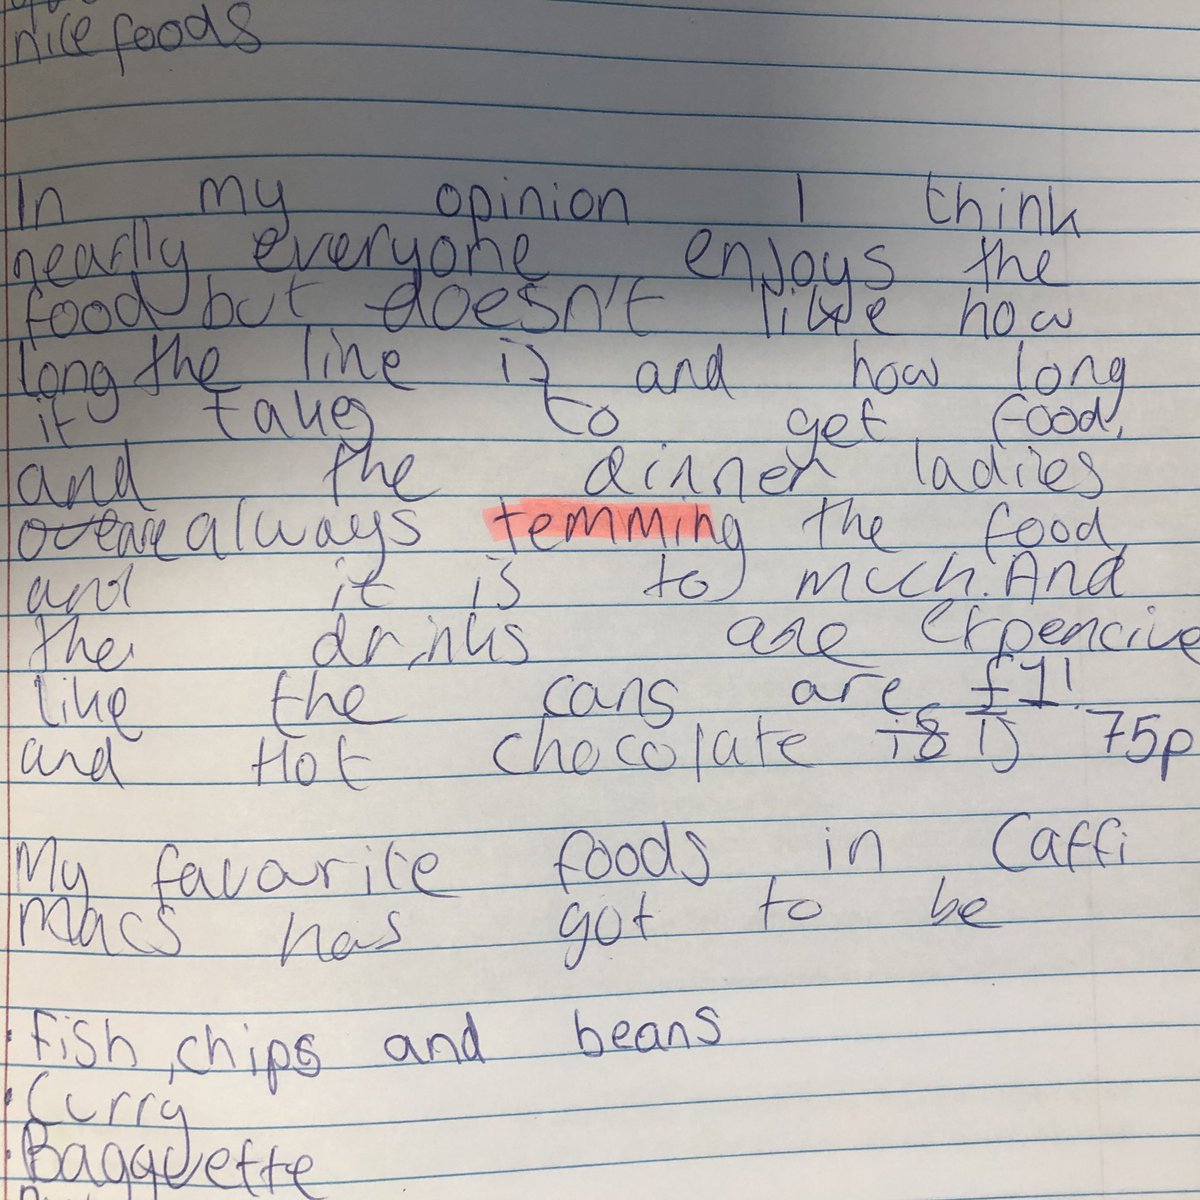 nice foods
In my opinion I think
nearlly everyone enjoys the
food but doesn't like how
long the line is and how long
it takes to get food,
and the dinner ladies
always temming the food
and it is to much. And
the drinks are expencive
like the cans are £1!
and Hot chocolate is 75p
My favourite foods in Caffi
Macs has got to be
• fish, chips and beans
• Curry
• Bagguette